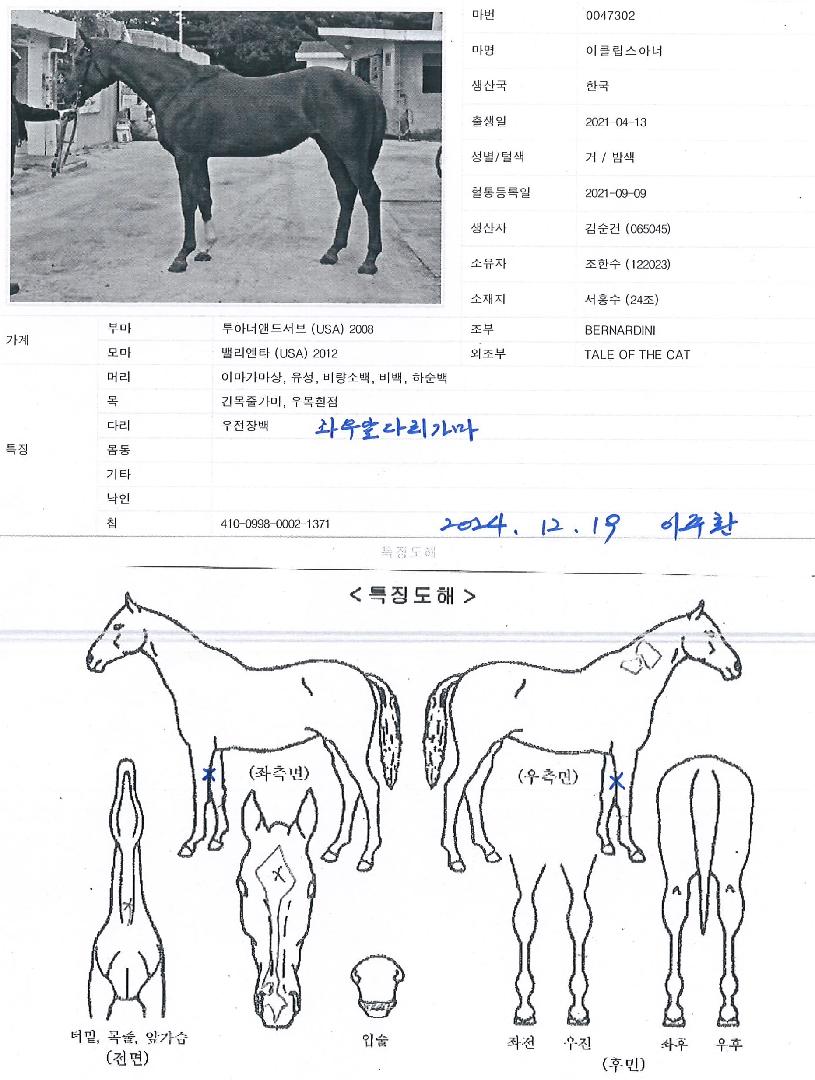 마번 0047302
마명 이클립스아너
생산국 한국
출생일 2021-04-13
성별/털색 거 / 밤색
혈통등록일 2021-09-09
생산자 김순건 (065045)
소유자 조한수 (122023)
소재지 서홍수 (24조)
가계 부마 투아너앤드서브 (USA) 2008 조부 BERNARDINI
모마 밸리엔타 (USA) 2012 외조부 TALE OF THE CAT
특징 머리 이마가마상, 유성, 비량소백, 비백, 하순백
목 긴목줄가마, 우목흰점
다리 우전장백 좌우앞다리가마
몸통
기타
낙인
칩 410-0998-0002-1371 2024. 12. 19 이주환
특징도해
<특징도해>
(좌측면) (우측면)
터밑, 목줄, 앞가슴 입술 좌전 우전 좌후 우후
(전면) (후면)